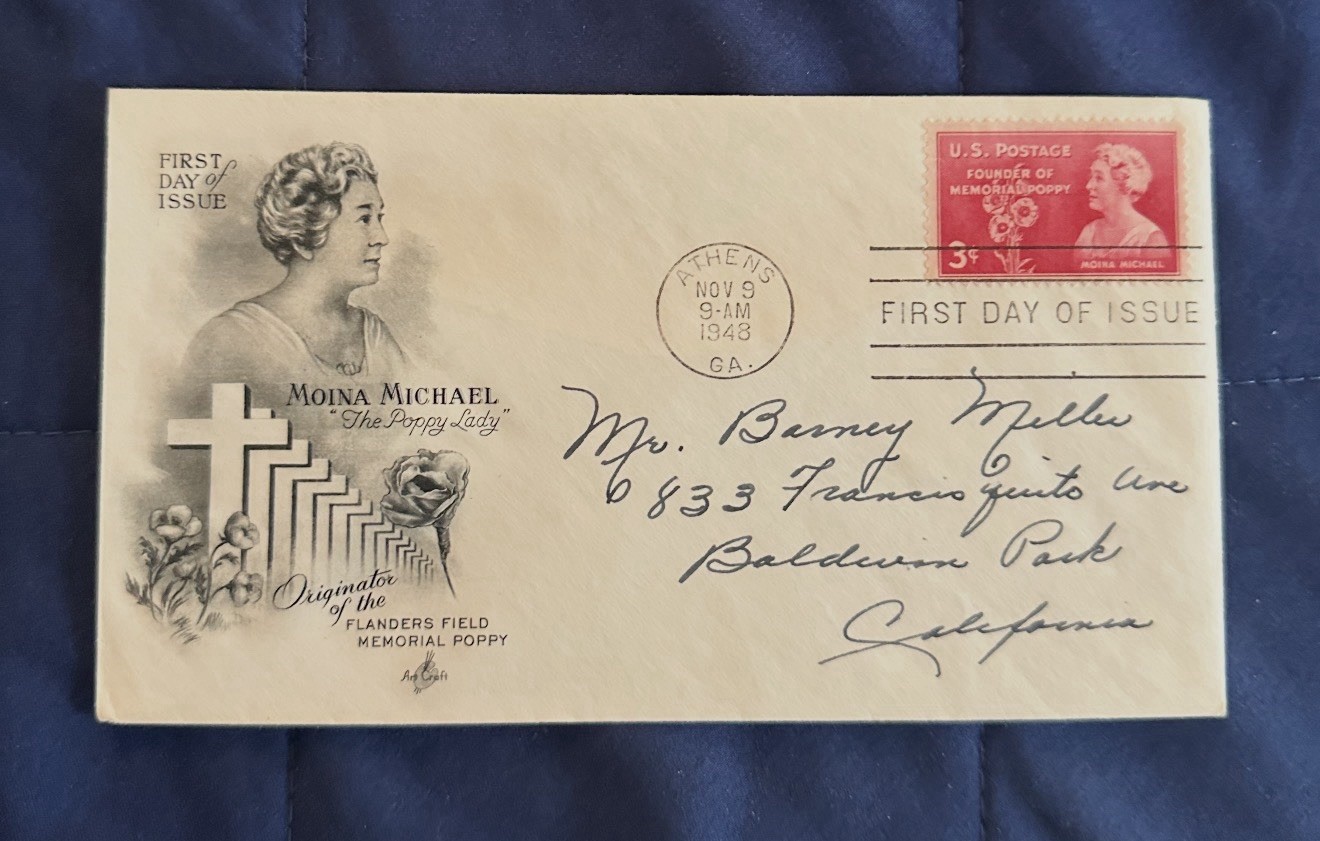 FIRST
DAY of
ISSUE
MOINA MICHAEL
"The Poppy Lady"
Originator
of the
FLANDERS FIELD
MEMORIAL POPPY
Art Craft
ATHENS
NOV 9
9-AM
1948
GA.
U.S. POSTAGE
FOUNDER OF
MEMORIAL POPPY
3¢
MOINA MICHAEL
FIRST DAY OF ISSUE
Mr. Barney Miller
6833 Francisquito Ave
Baldwin Park
California